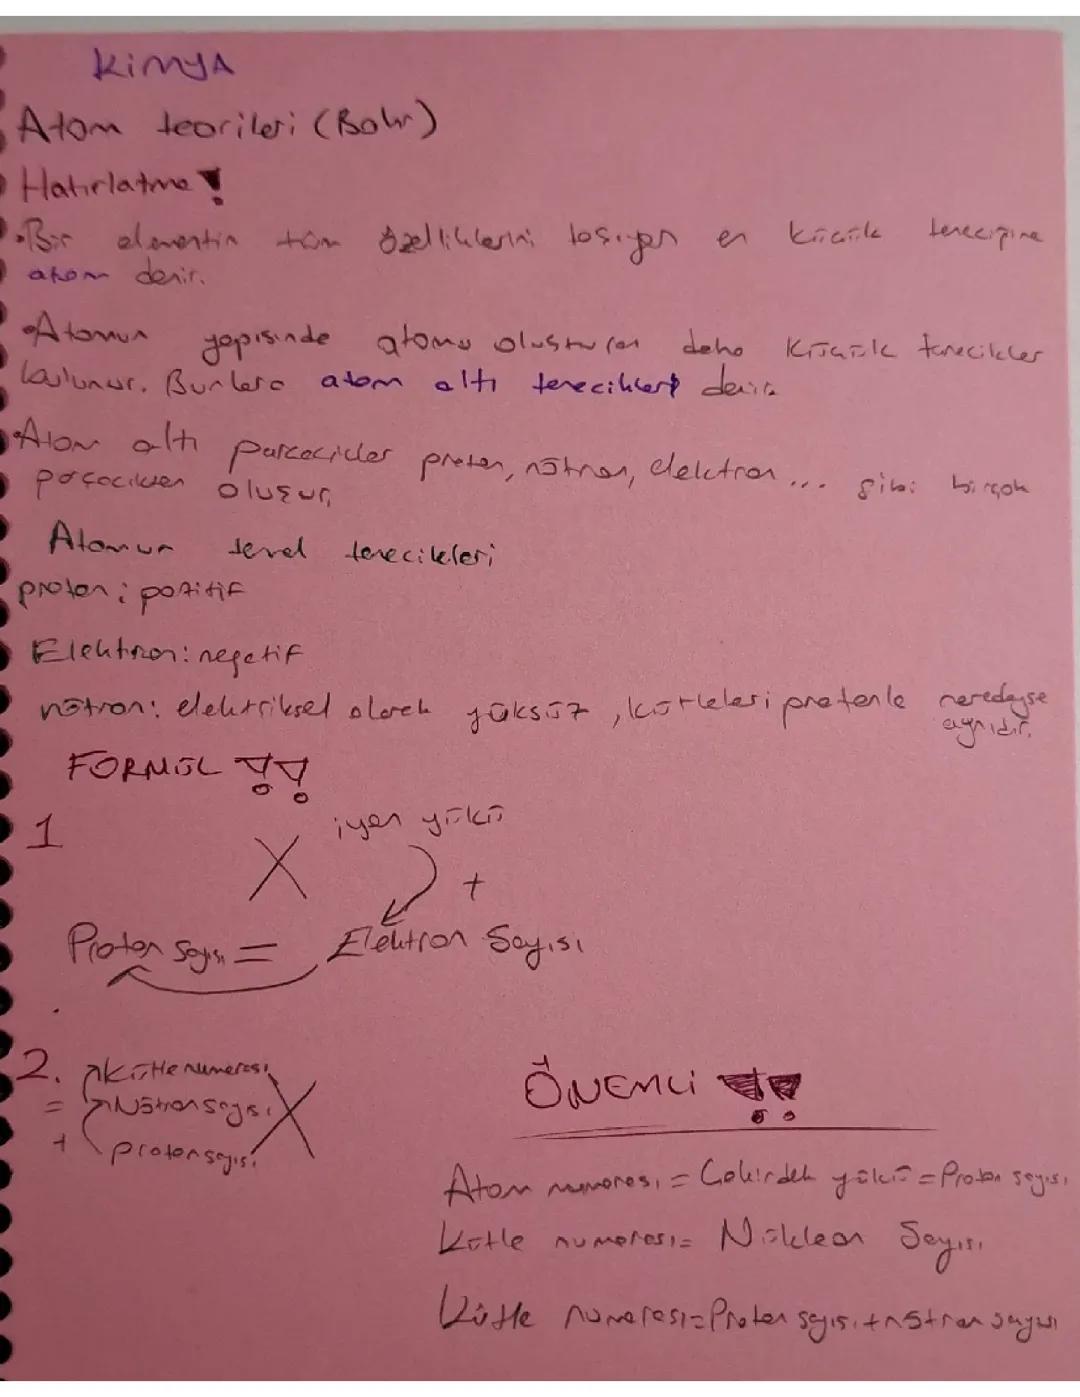 KimyA
Atom teorileri (Bohr)
Hatırlatma!
•Bir elementin tüm özelliklerini taşıyan en küçük taneciğine
atom denir.
•Atomun yapısında atomu oluşturan daha küçük tanecikler
bulunur. Bunlara atom altı tanecikleri denir.
•Atom altı parçacıklar proton, nötron, elektron... gibi birçok
parçacıktan oluşur.
Atomun temel tanecikleri
proton: pozitif
Elektron: negatif
nötron: elektriksel olarak yüksüz, kütleleri protonla neredeyse
aynıdır.
FORMÜL !!
1
iyon yükü
+
Proton Sayısı = Elektron Sayısı
2. Kütle numarası
= Nötron sayısı
+ proton sayısı
ÖNEMLİ !!
Atom numarası = Çekirdek yükü = Proton sayısı
Kütle numarası = Nükleon Sayısı
Kütle numarası = Proton sayısı + nötron sayısı